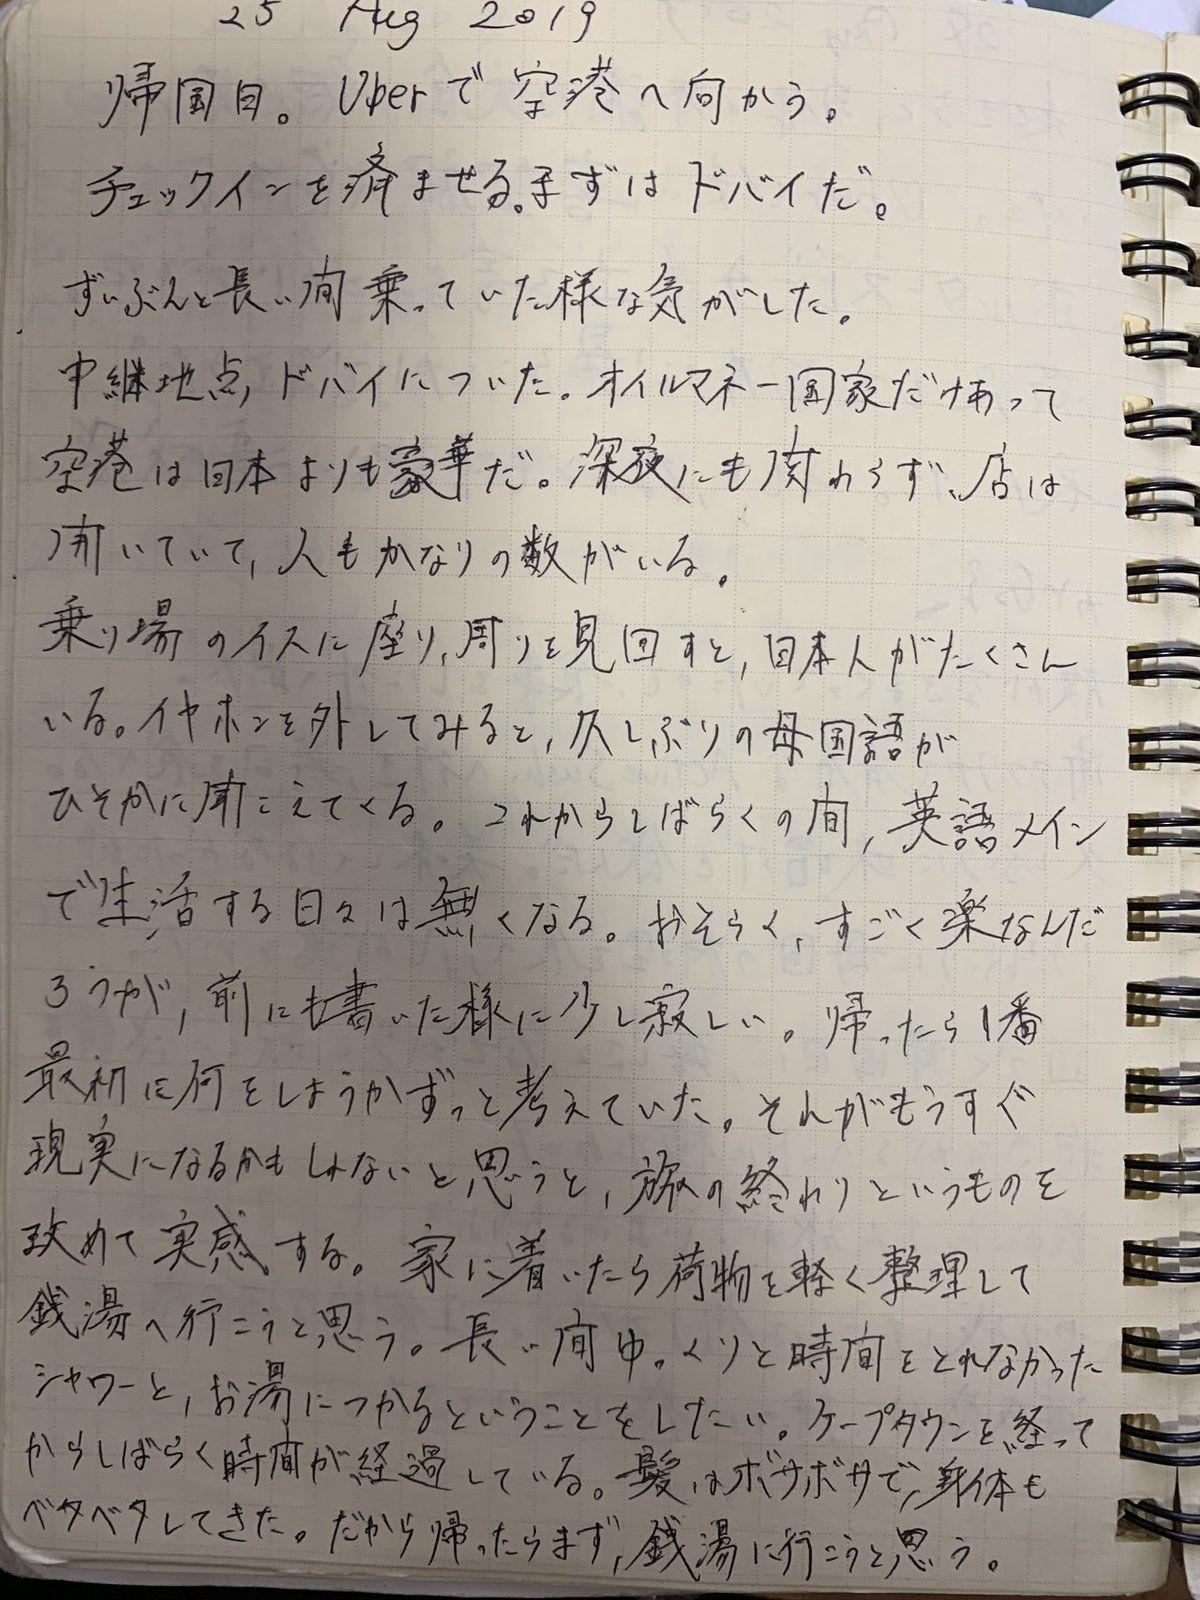 25 Aug 2019
帰国日。Uberで空港へ向かう。
チェックインを済ませる。まずはドバイだ。
ずいぶんと長い間乗っていた様な気がした。
中継地点,ドバイについた。オイルマネー国家だけあって
空港は日本よりも豪華だ。深夜にも関わらず、店は
開いていて,人もかなりの数がいる。
乗り場のイスに座り,周りを見回すと,日本人がたくさん
いる。イヤホンを外してみると,久しぶりの母国語が
ひそかに聞こえてくる。これからしばらくの間,英語メイン
で生活する日々は無くなる。おそらく,すごく楽なんだ
ろうが,前にも書いた様に少し寂しい。帰ったら1番
最初に何をしようかずっと考えていた。それがもうすぐ
現実になるかもしれないと思うと,旅の終わりというものを
改めて実感する。家に着いたら荷物を軽く整理して
銭湯へ行こうと思う。長い間ゆっくりと時間をとれなかった
シャワーと,お湯につかるということをしたい。ケープタウンを経って
からしばらく時間が経過している。髪はボサボサで,身体も
ベタベタしてきた。だから帰ったらまず,銭湯に行こうと思う。